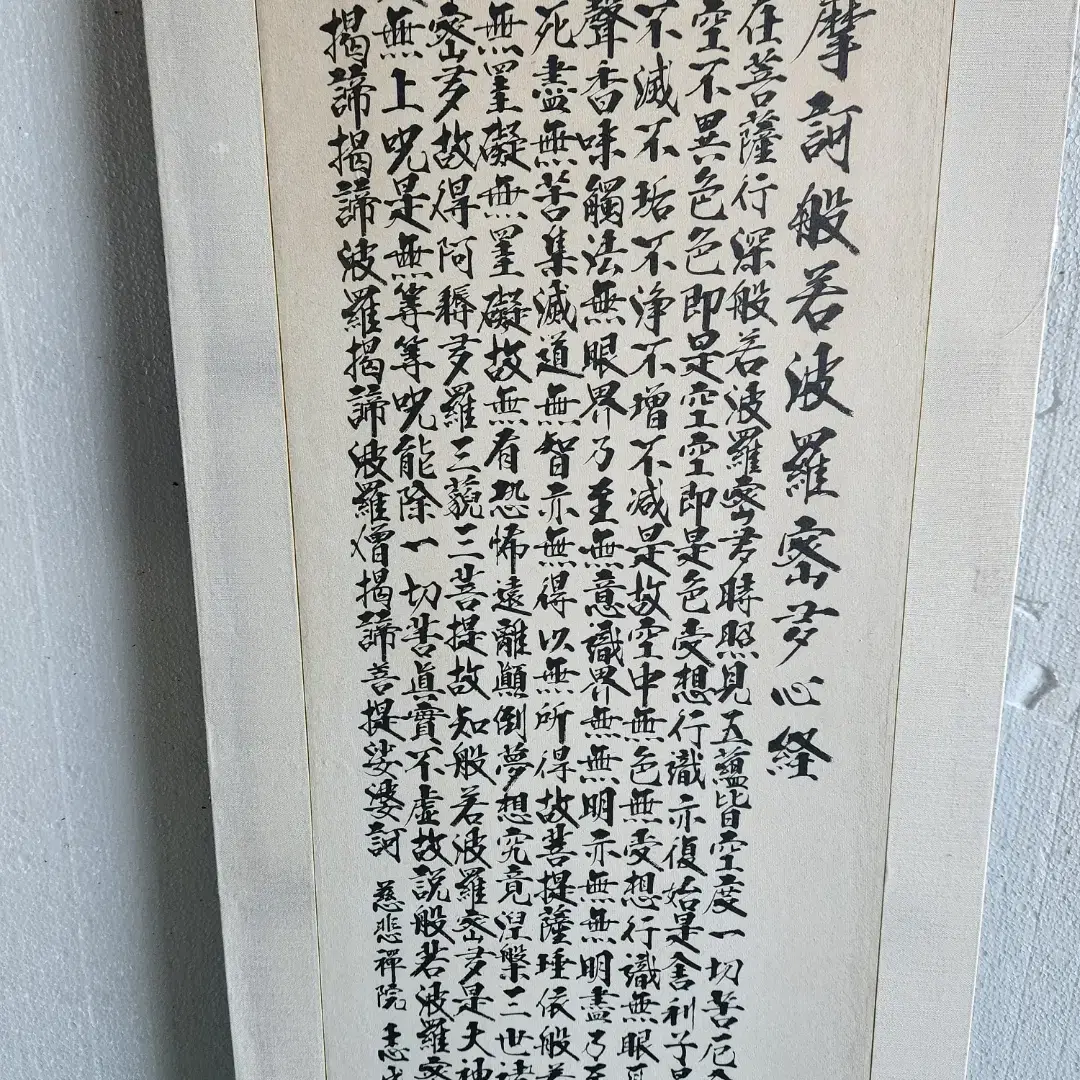 摩訶般若波羅蜜多心経
在菩薩行深般若波羅蜜多時照見五蘊皆空度一切苦厄
空不異色色即是空空即是色受想行識亦復始是舍利子
不滅不垢不浄不增不減是故空中無色無受想行識無眼
聲香味觸法無眼界乃至無意識界無無明亦無無明盡乃至
死盡無苦集滅道無智亦無得以無所得故菩提薩埵依般若
無罣礙無罣礙故無有恐怖遠離顛倒夢想究竟涅槃三世諸
蜜多故得阿耨多羅三藐三菩提故知般若波羅蜜多是大神
無上呪是無等等呪能除一切苦眞實不虛故説般若波羅蜜
揭諦揭諦波羅揭諦波羅僧揭諦菩提娑婆訶 慈悲禪院